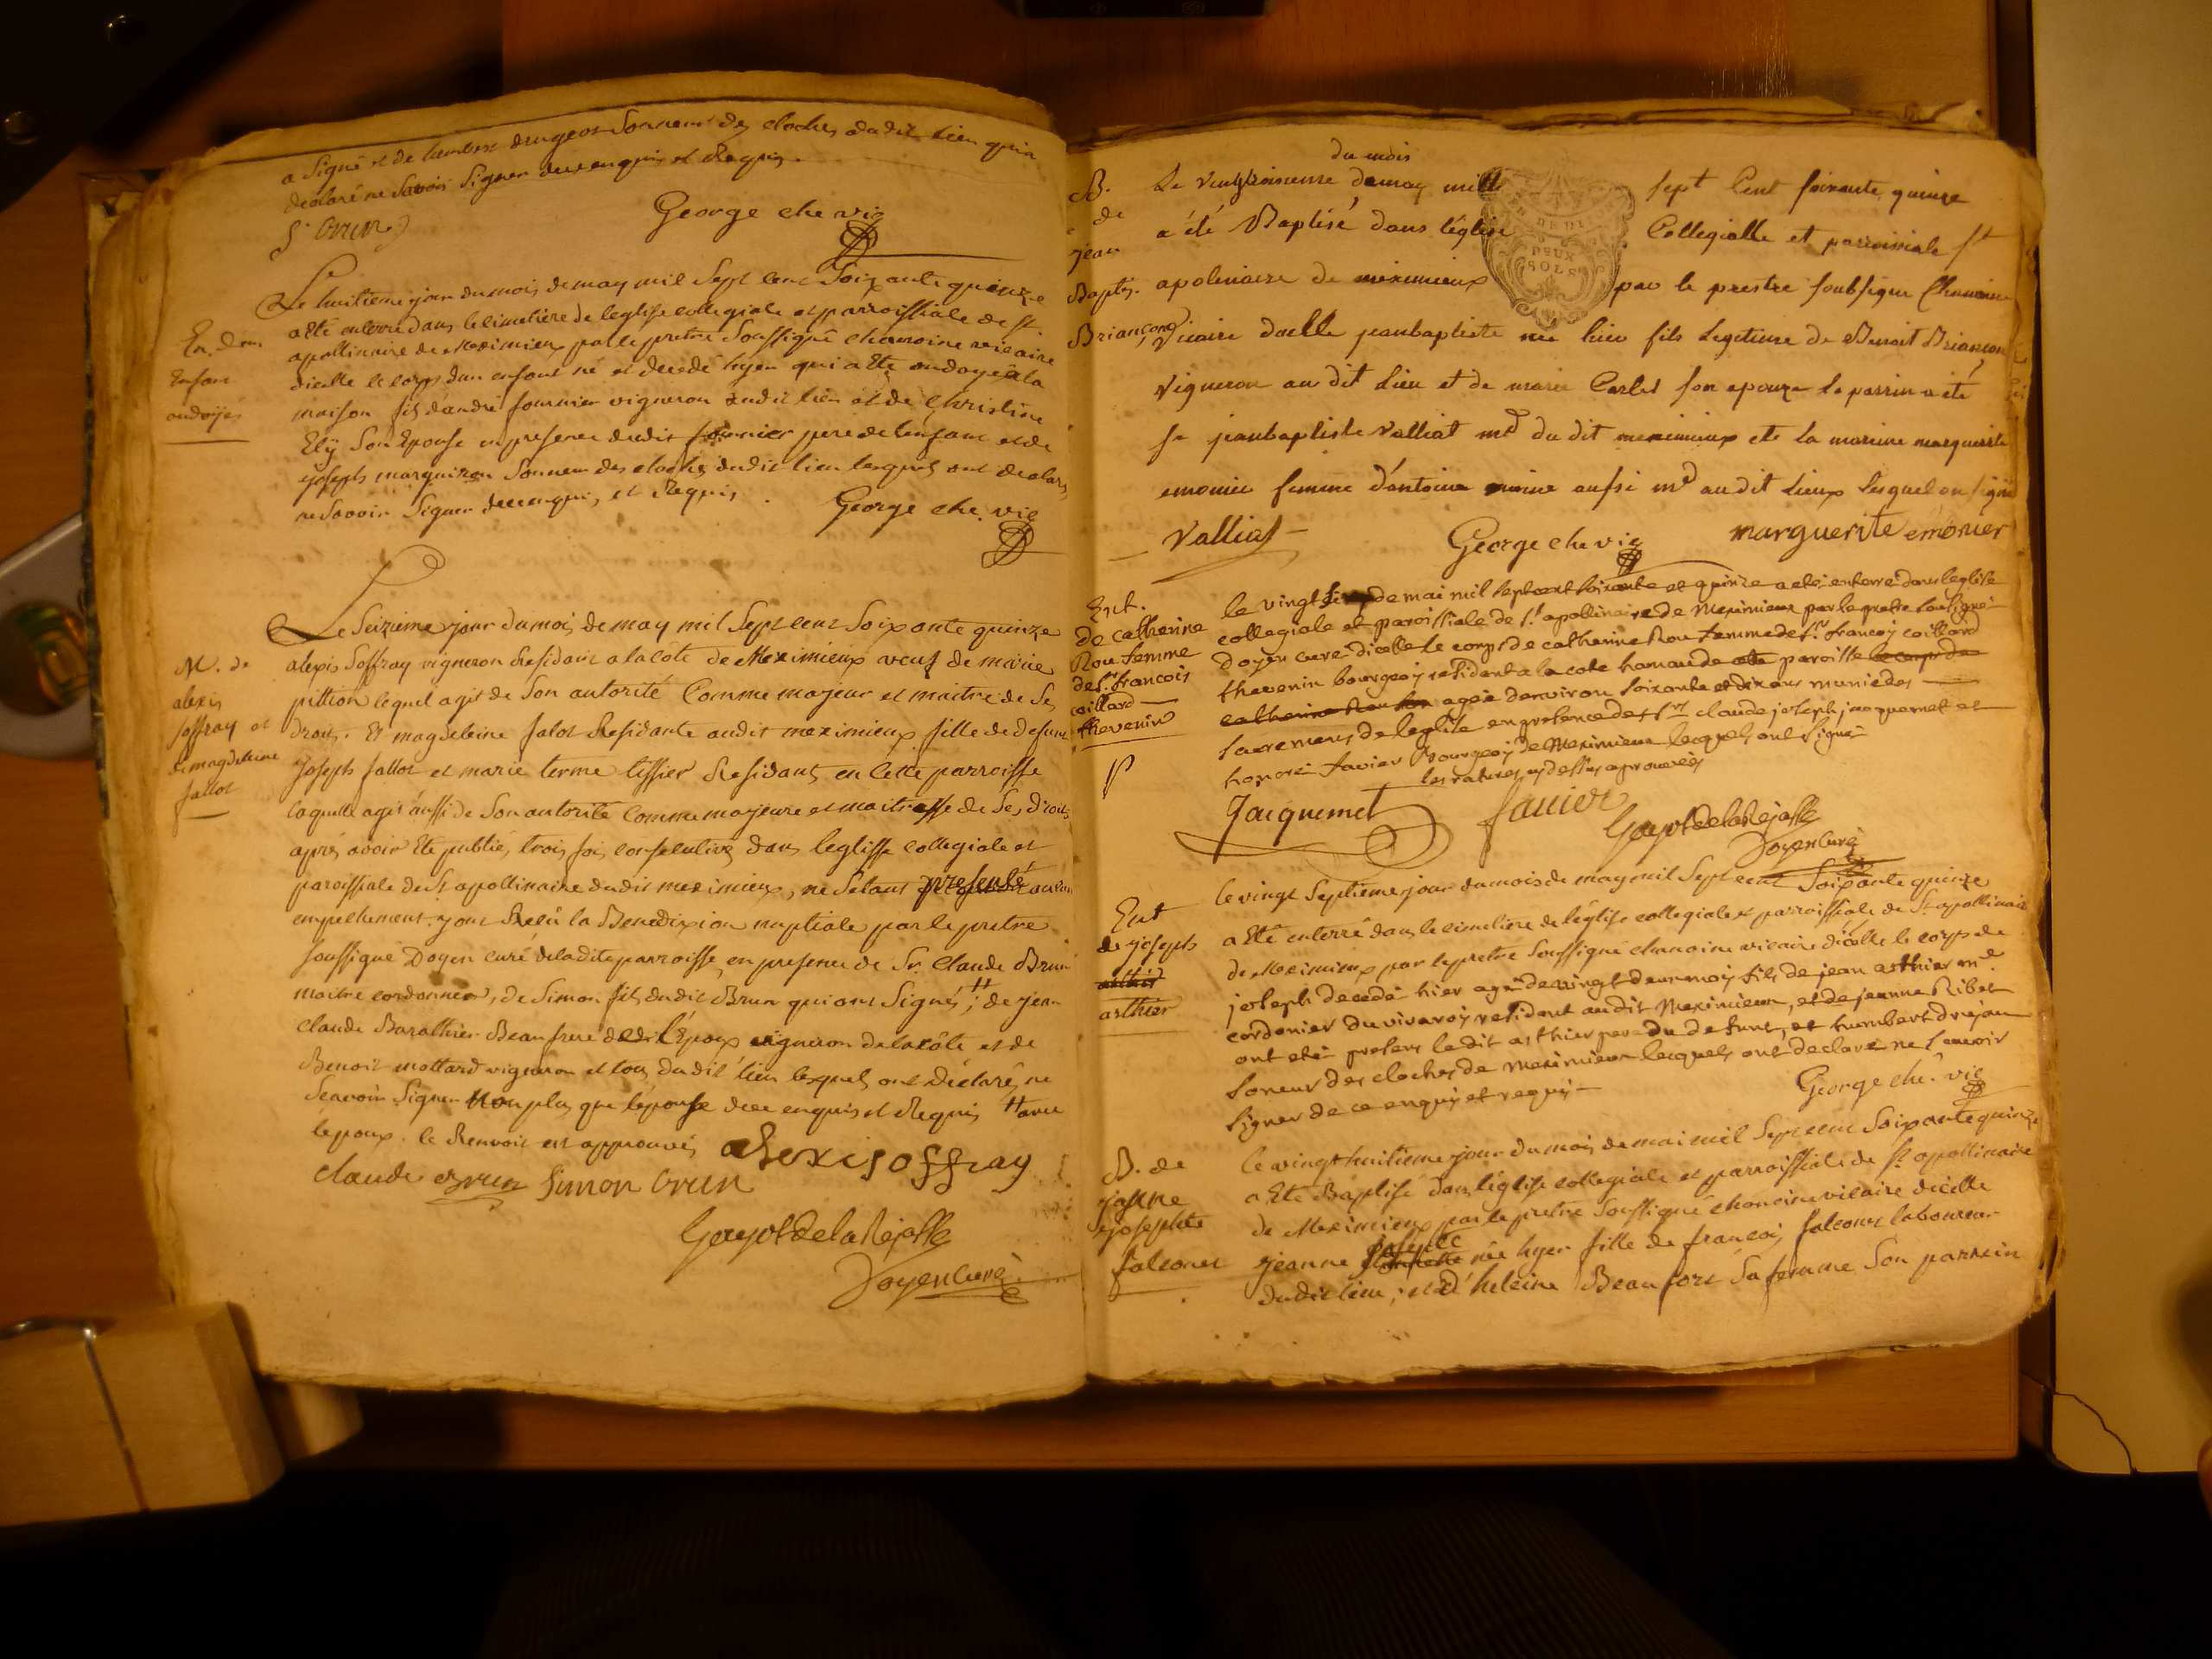 a signé et de humbert drugeon sonneur des cloches dudit lieu qui a
déclaré ne savoir signer de ce enquis et requis.
S. brun
George che vic
En. d'un
Enfant
ondoyé
Le huitieme jour du mois de may mil sept cent soixante quinze
a été enterré dans le cimetière de l'eglise collegiale et parroissiale de st.
apollinaire de Meximieux par le pretre soussigné chanoine vicaire
d'icelle le corps d'un enfant né et decedé hyer qui a eté ondoyé a la
maison fils d'andré fournier vigneron dudit lieu et de christine
Ely son Epouse en presence dudit fournier pere de l'enfant et de
joseph marguiron sonneur des cloches dudit lieu lesquels ont declaré
ne savoir signer de ce enquis, et requis.
George che. vic
M. de
alexis
soffray et
de magdeleine
fallot
Le seizieme jour du mois de may mil sept cent soixante quinze
alexis soffray vigneron residant a la cote de Meximieux veuf de marie
pittion lequel agit de son autorité comme majeur et maitre de ses
droits. Et magdeleine falot residante audit meximieux fille de defunt
joseph fallot et marie terme tissier residants en cette parroisse
laquelle agit aussi de son autorité comme majeure et maitresse de ses droits
après avoir eté publiés trois fois consecutives dans l'eglisse collegiale et
paroissiale de St apollinaire dudit meximieux, ne s'etant presenté aucun
empechement. y ont reçu la Benediction nuptiale par le pretre
soussigné Doyen curé de ladite parroisse en presence de Sr. Claude Brun
maitre cordonnier, de Simon fils dudit Brun qui ont signés, ++ de jean
claude Baralhier Beaufrere dudit l'Epoux vigneron de la côte et de
Benoit mottard vigneron et tous dudit lieu lesquels ont déclaré ne
scavoir signer non plus que l'épouse de ce enquis et requis ++ avec
l'epoux. le Renvoit est approuvé
alexis soffray
claude brun simon brun
Goyot de la Rejasse
Doyen Curé
du mois
B.
de
jean
Baptis.
Briançon
Le vingtroisieme de may mille sept Cent soixante quinze
a été Baptisé dans l'église Collegialle et parroissiale st
apolinaire de meximieux par le prestre soubsigne Chanoine
Vicaire d'icelle jeanbaptiste née hier fils legitime de Benoit Briançon
vigneron au dit lieu et de marie Carlet son epouze le parrin a été
sr jeanbaptiste Valliat md du dit meximieux et la marine marguerite
emonier femme d'antoine mine aussi md audit lieux lesquel on signé
Valliat
George che vic
marguerite emonier
EN DEUX SOLS
Ent.
de catherine
Rou femme
de sr. francois
coillard
thevenin
le vingt six de mai mil sept cent soixante et quinze a eté enterré dans l'eglise
collegiale et paroissiale de st. apollinaire de Meximieux par le pretre soussigné
doyen curé d'icelle le corps de catherine Rou femme de sr. francois coillard
thevenin bourgeois residant a la cote hameau de cette paroisse le corps de
catherine Rou agée d'environ soixante et dix ans munie des
sacremens de l'eglise en presence des srs claude joseph jacquemet et
honoré favier Bourgeois de Meximieux lesquels ont signé
les ratures cy dessus aprouvées
Jacquemet
favier
Goyot de la Rejasse
Doyen Curé
Ent
de joseph
asthier
asthier
le vingt septieme jour du mois de may mil sept cent soixante quinze
a été enterré dans le cimetiere de l'église collegiale et parroissiale de St apollinaire
de Meximieux par le pretre soussigné chanoine vicaire d'icelle le corps de
joseph decedé hier agé de vingt deux mois fils de jean asthier me.
cordonier du vivarois residant audit Meximieux, et de jeanne Ribet
ont eté presens ledit asthier pere du defunt, et humbert drujon
soneur des cloches de Meximieux lesquels ont declaré ne scavoir
signer de ce enquis et requis
George che. vic
B. de
jeanne
josephte
falconet
le vingt huitieme jour du mois de mai mil sept cent soixante quinze
a été Baptisé dans l'église collegiale et parroissiale de st apollinaire
de Meximieux par le pretre soussigné chanoine vicaire d'icelle
jeanne josephte née hyer fille de francois falconet laboureur
dudit lieu; et d'heleine Beaufort sa femme son parrein